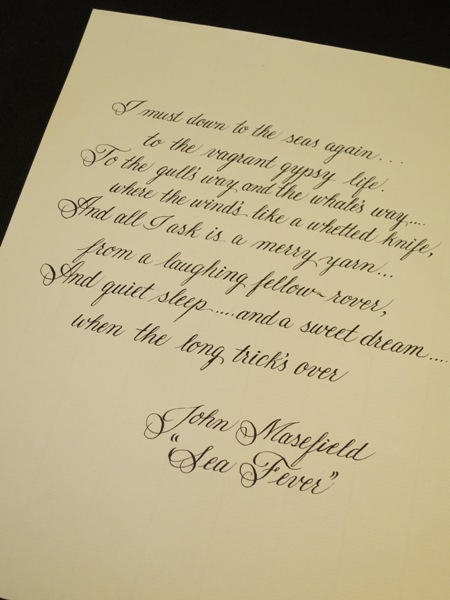 I must down to the seas again...
to the vagrant gypsy life.
To the gull's way and the whale's way....
where the wind's like a whetted knife,
And all I ask is a merry yarn...
from a laughing fellow-rover,
And quiet sleep.....and a sweet dream....
when the long trick's over
John Masefield
"Sea Fever"